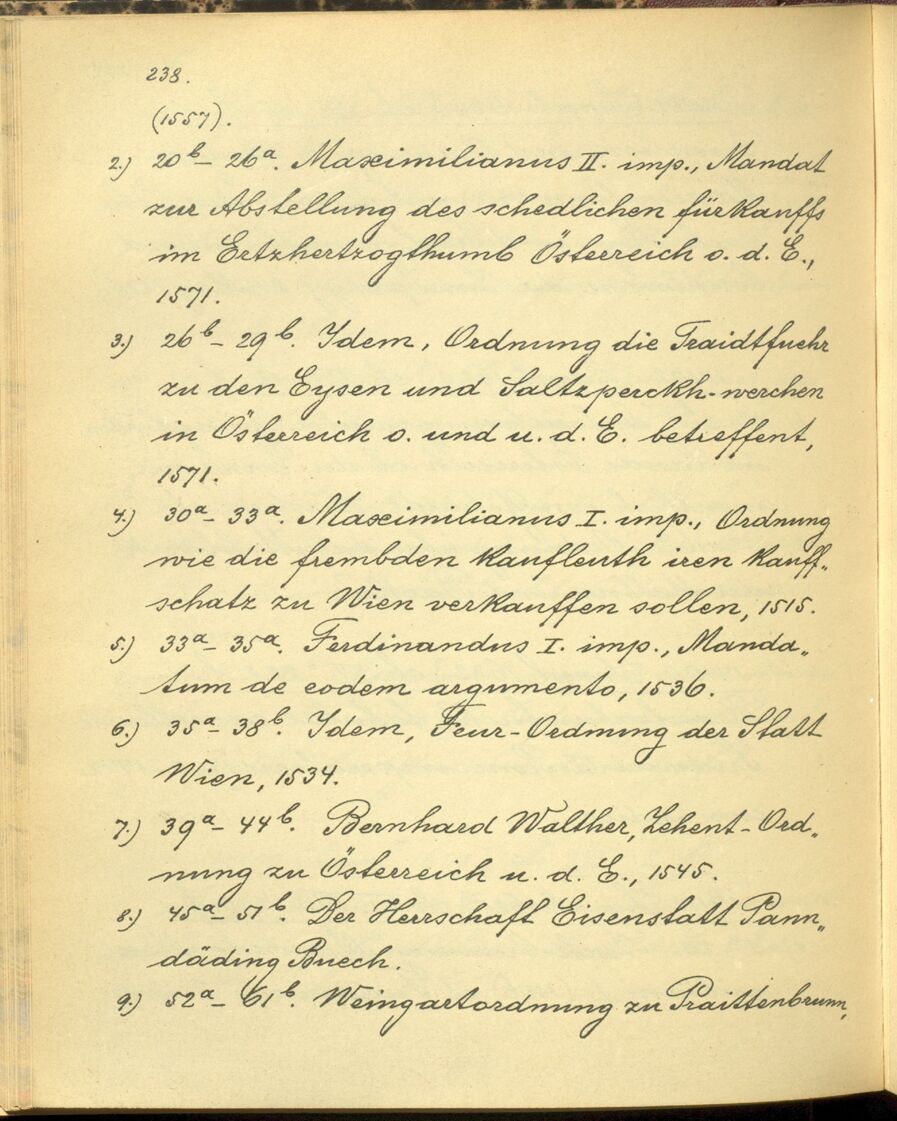 238.
(1557).
2.) 20b– 26a. Maximilianus II. imp., Mandat
zur Abstellung des schedlichen fürkauffs
im Ertzhertzogthumb Österreich o. d. E.,
1571.
3.) 26b– 29b. Idem, Ordnung die Traidtfuehr
zu den Eysen und Saltzperckh-werchen
in Österreich o. und u. d. E. betreffent,
1571.
4.) 30a– 33a. Maximilianus I. imp., Ordnung
wie die frembden kaufleuth iren kauff„
schatz zu Wien verkauffen sollen, 1515.
5.) 33a– 35a. Ferdinandus I. imp., Manda„
tum de eodem argumento, 1536.
6.) 35a– 38b. Idem, Feur-Ordnung der Statt
Wien, 1534.
7.) 39a– 44b. Bernhard Walther, Zehent-Ord„
nung zu Österreich u. d. E., 1545.
8.) 45a– 51b. Der Herrschaft Eisenstatt Pann„
däding Buech.
9.) 52a– 61b. Weingartordnung zu Praittenbrunn,